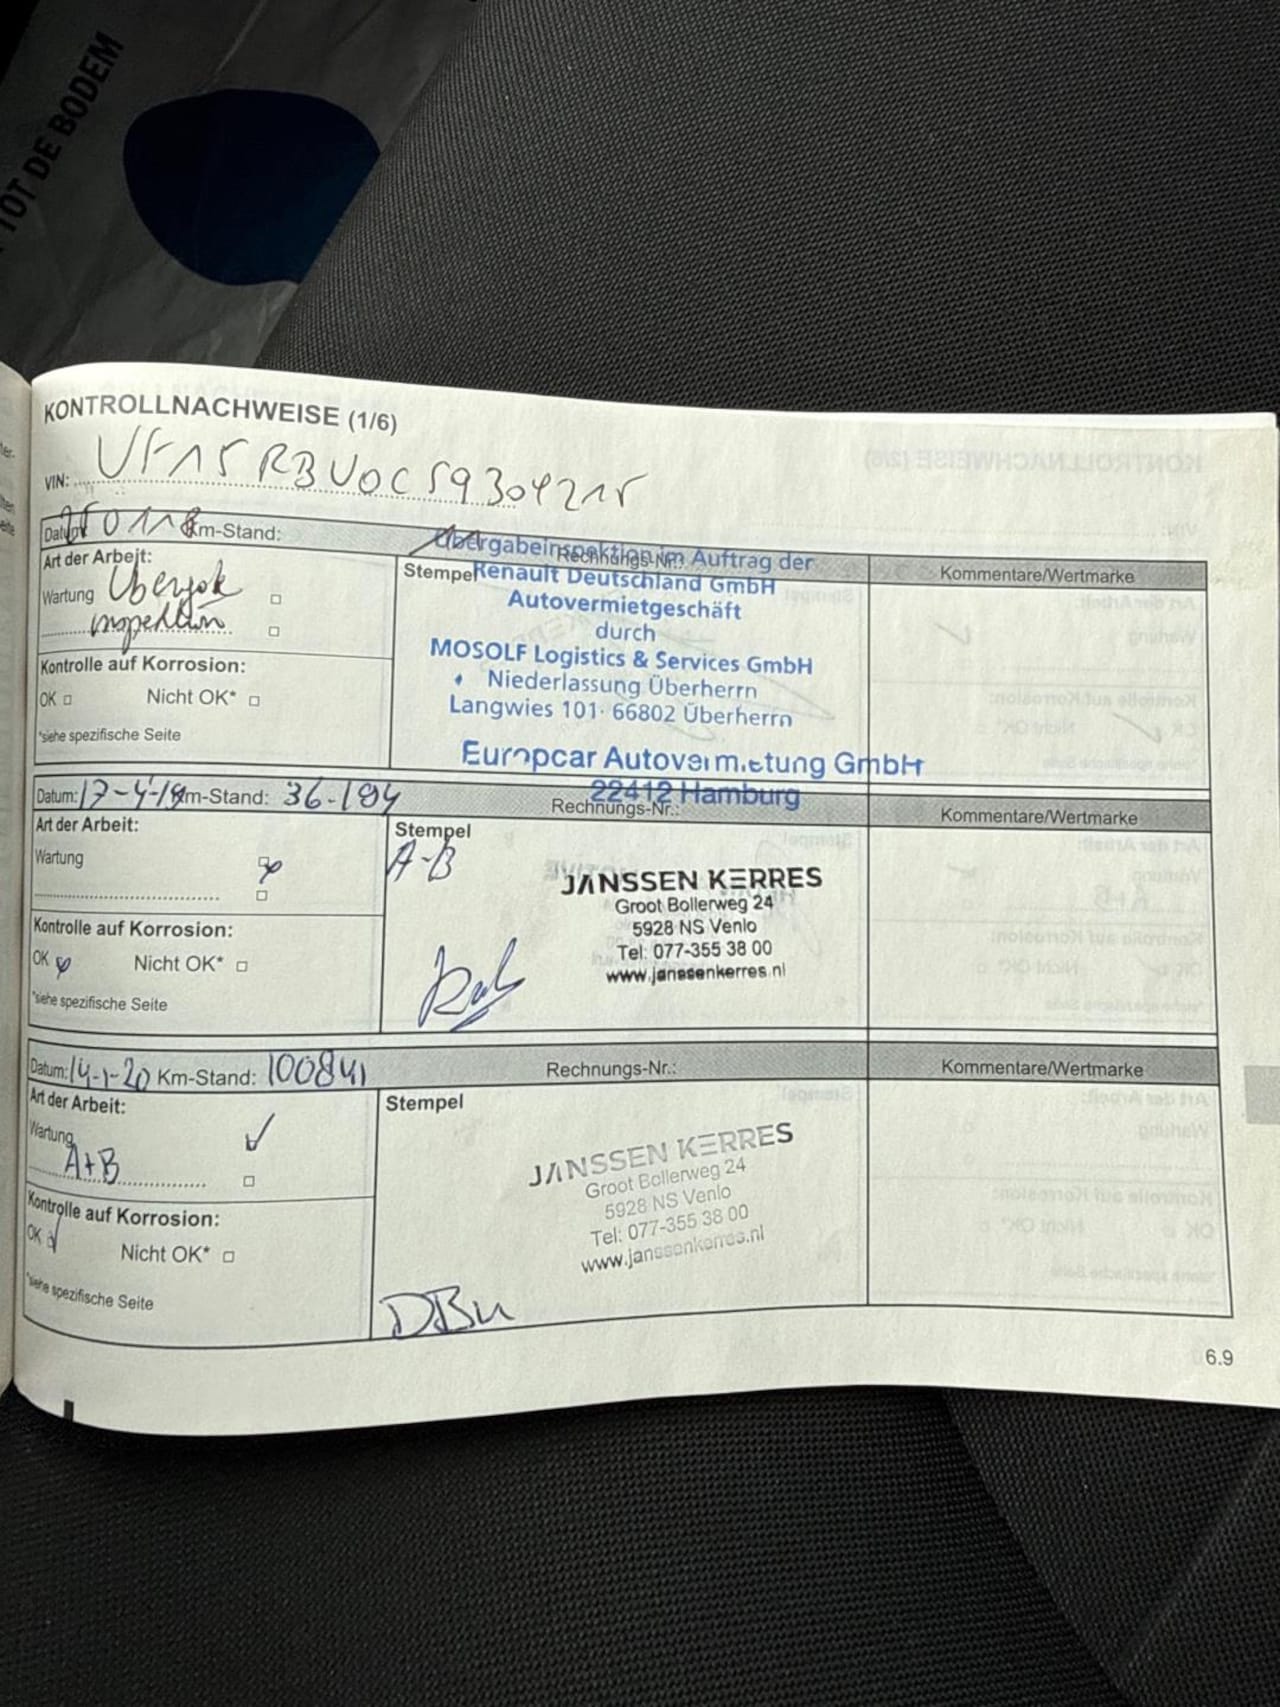 TOT DE BODEM
KONTROLLNACHWEISE (1/6)
VIN: VF15RBU0C59304215
Datum: Km-Stand: Rechnungs-Nr.: Kommentare/Wertmarke
Art der Arbeit:
Wartung Übergabe
inspektion
Kontrolle auf Korrosion:
OK Nicht OK*
*siehe spezifische Seite
Stempel
Übergabeinspektion im Auftrag der
Renault Deutschland GmbH
Autovermietgeschäft
durch
MOSOLF Logistics & Services GmbH
Niederlassung Überherrn
Langwies 101· 66802 Überherrn
Europcar Autovermietung GmbH
22412 Hamburg
Datum: 17-4-19 Km-Stand: 36.194 Rechnungs-Nr.: Kommentare/Wertmarke
Art der Arbeit:
Wartung
Kontrolle auf Korrosion:
OK Nicht OK*
*siehe spezifische Seite
Stempel
A-B
JANSSEN KERRES
Groot Bollerweg 24
5928 NS Venlo
Tel: 077-355 38 00
www.janssenkerres.nl
Datum: 14-1-20 Km-Stand: 100841 Rechnungs-Nr.: Kommentare/Wertmarke
Art der Arbeit:
Wartung
A+B
Kontrolle auf Korrosion:
OK Nicht OK*
*siehe spezifische Seite
Stempel
JANSSEN KERRES
Groot Bollerweg 24
5928 NS Venlo
Tel: 077-355 38 00
www.janssenkerres.nl
6.9